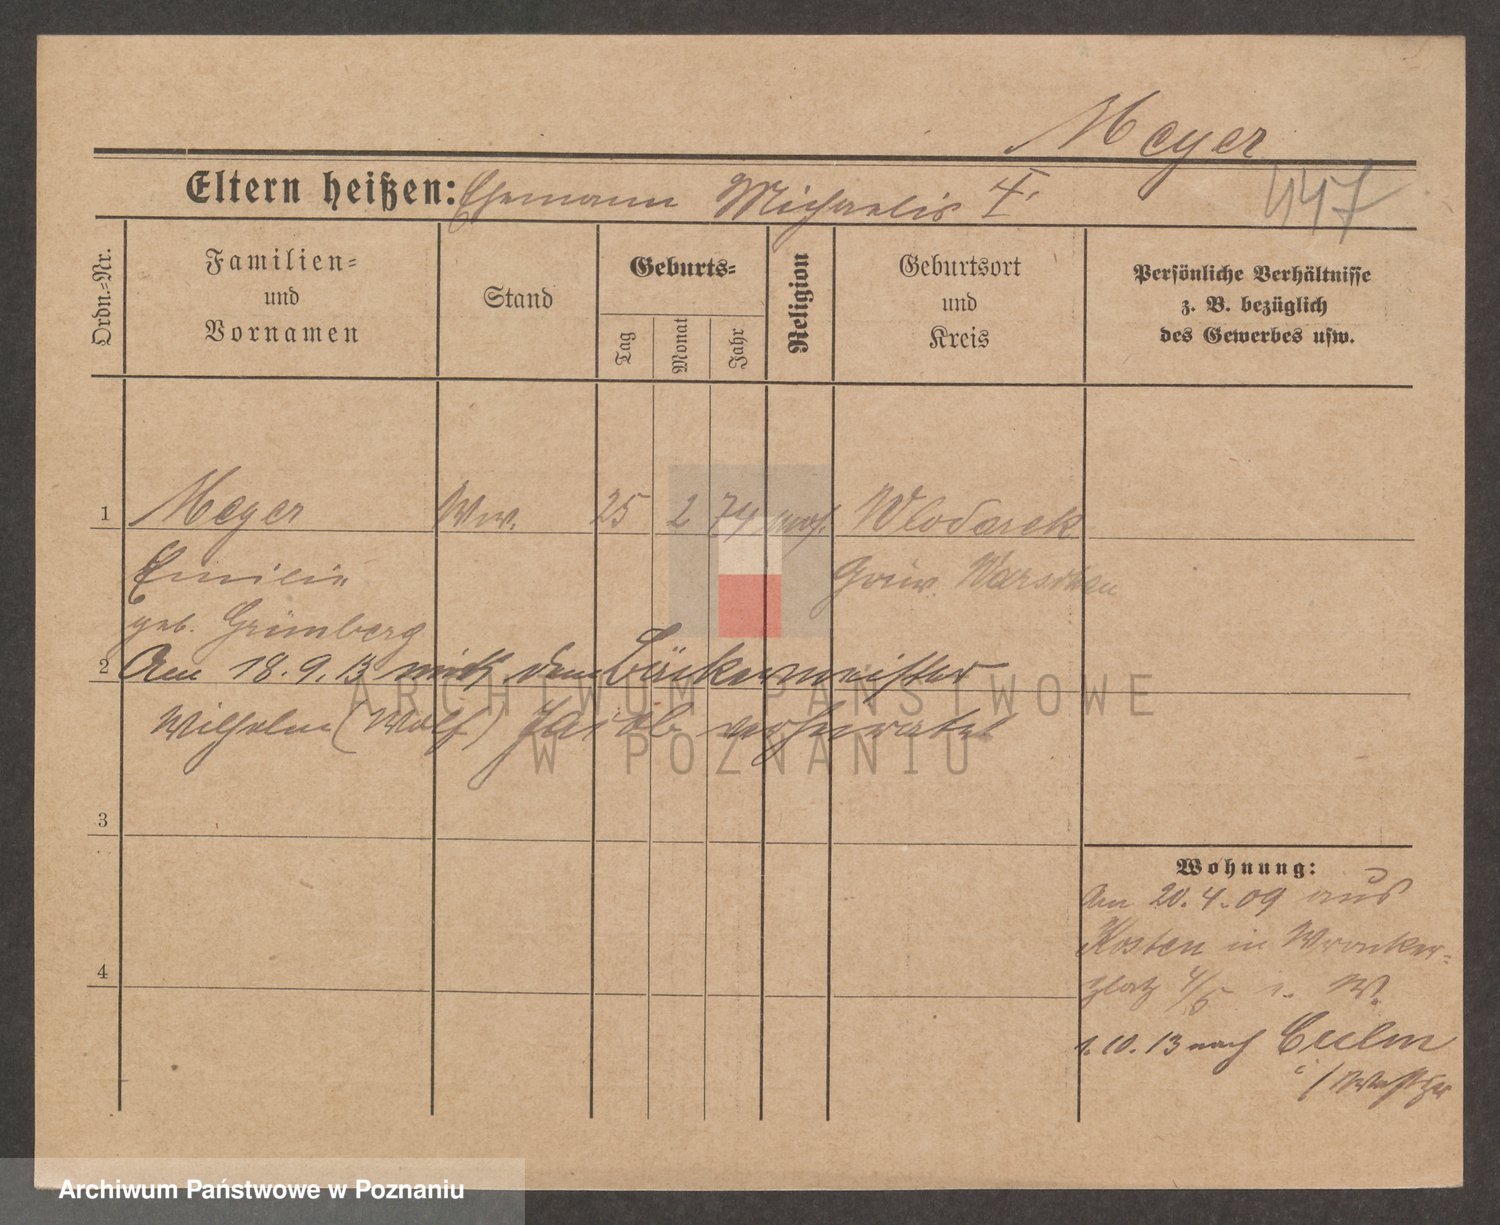 Meyer
Eltern heißen: Ehemann Michaelis †.
447
Ordn.-Nr.
Familien- und Vornamen
Stand
Geburts-
Tag
Monat
Jahr
Religion
Geburtsort und Kreis
Persönliche Verhältnisse z. B. bezüglich des Gewerbes usw.
1
Meyer Ww. 25 2 74 mos. Wlodarek
Emilie Gouv. Warschau
geb. Grümberg
2
Am 18.9.13 mit dem Bäckermeister
Wilhelm (Wolf) verheiratet
3
4
Wohnung:
Am 20.4.09 aus
Kosten in Wronker-
platz 4/5 W.
1.10.13 nach Culm
i/Westpr
ARCHIWUM PAŃSTWOWE
W POZNANIU
Archiwum Państwowe w Poznaniu